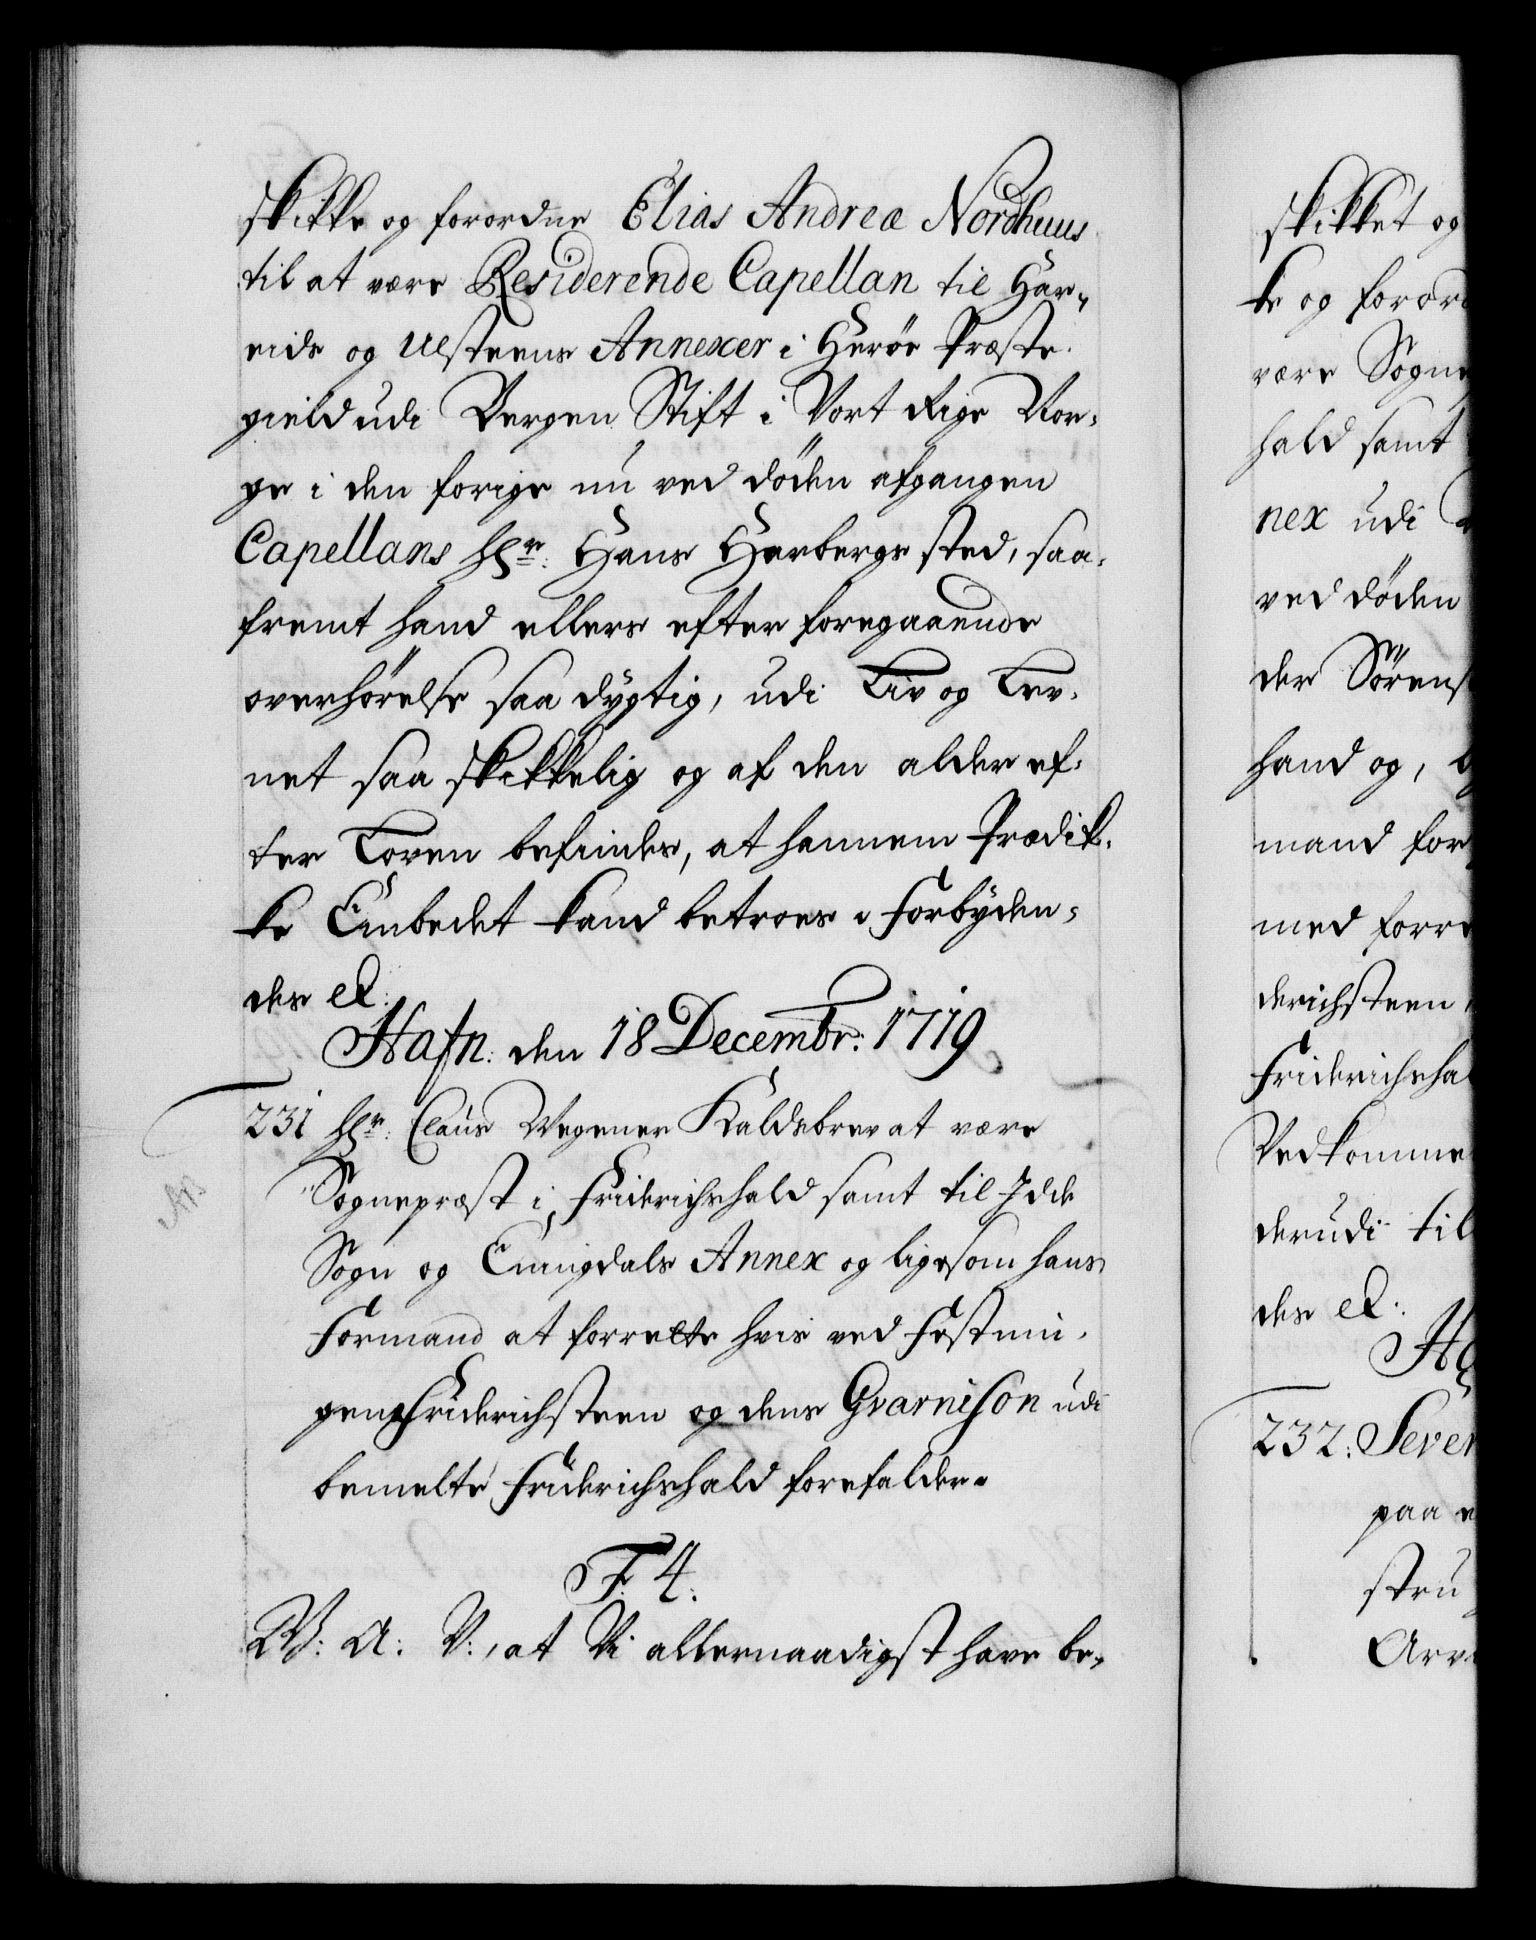 skikke og forordne Elias Andreæ Nordhuus
til at være Residerende Capellan til Har„
eids og Ulsteens Annexer i Herøe Præste-
gield udi Bergen Stift i Vort Rige Nor-
ge i den forige nu ved døden afgangen
Capellans Hr: Hans Harbergs sted, saa-
fremt hand ellers efter foregaaende
overhørelse saa dygtig, udi Liv og Lev-
net saa skikkelig og af den alder ef-
ter Loven befindes, at hannem Prædik-
ke Embedet kand betroes. Forbyden-
des etc:
Hafn: den 18 Decembr: 1719
231 Hr: Claus Wegener Kaldsbrev at være
Sognepræst i Friderichshald samt til Idde
Sogn og Enningdals Annex og ligesom hans
Formand at forrette hvis ved Festnin-
gen Friderichsteen og dens Gvarnison udi
bemelte Friderichshald forefalder.
F. 4.
W: A: V:, at Vi allernaadigst have be„
skikket og
ke og foror
være Sogne
hald samt
nex udi
ved døden
der Sørens
hand og,
mand for
med forre
derichsteen
Friderichsha
Vedkomme
derudi til
des etc:
232: Sever
paa
stru
Arv